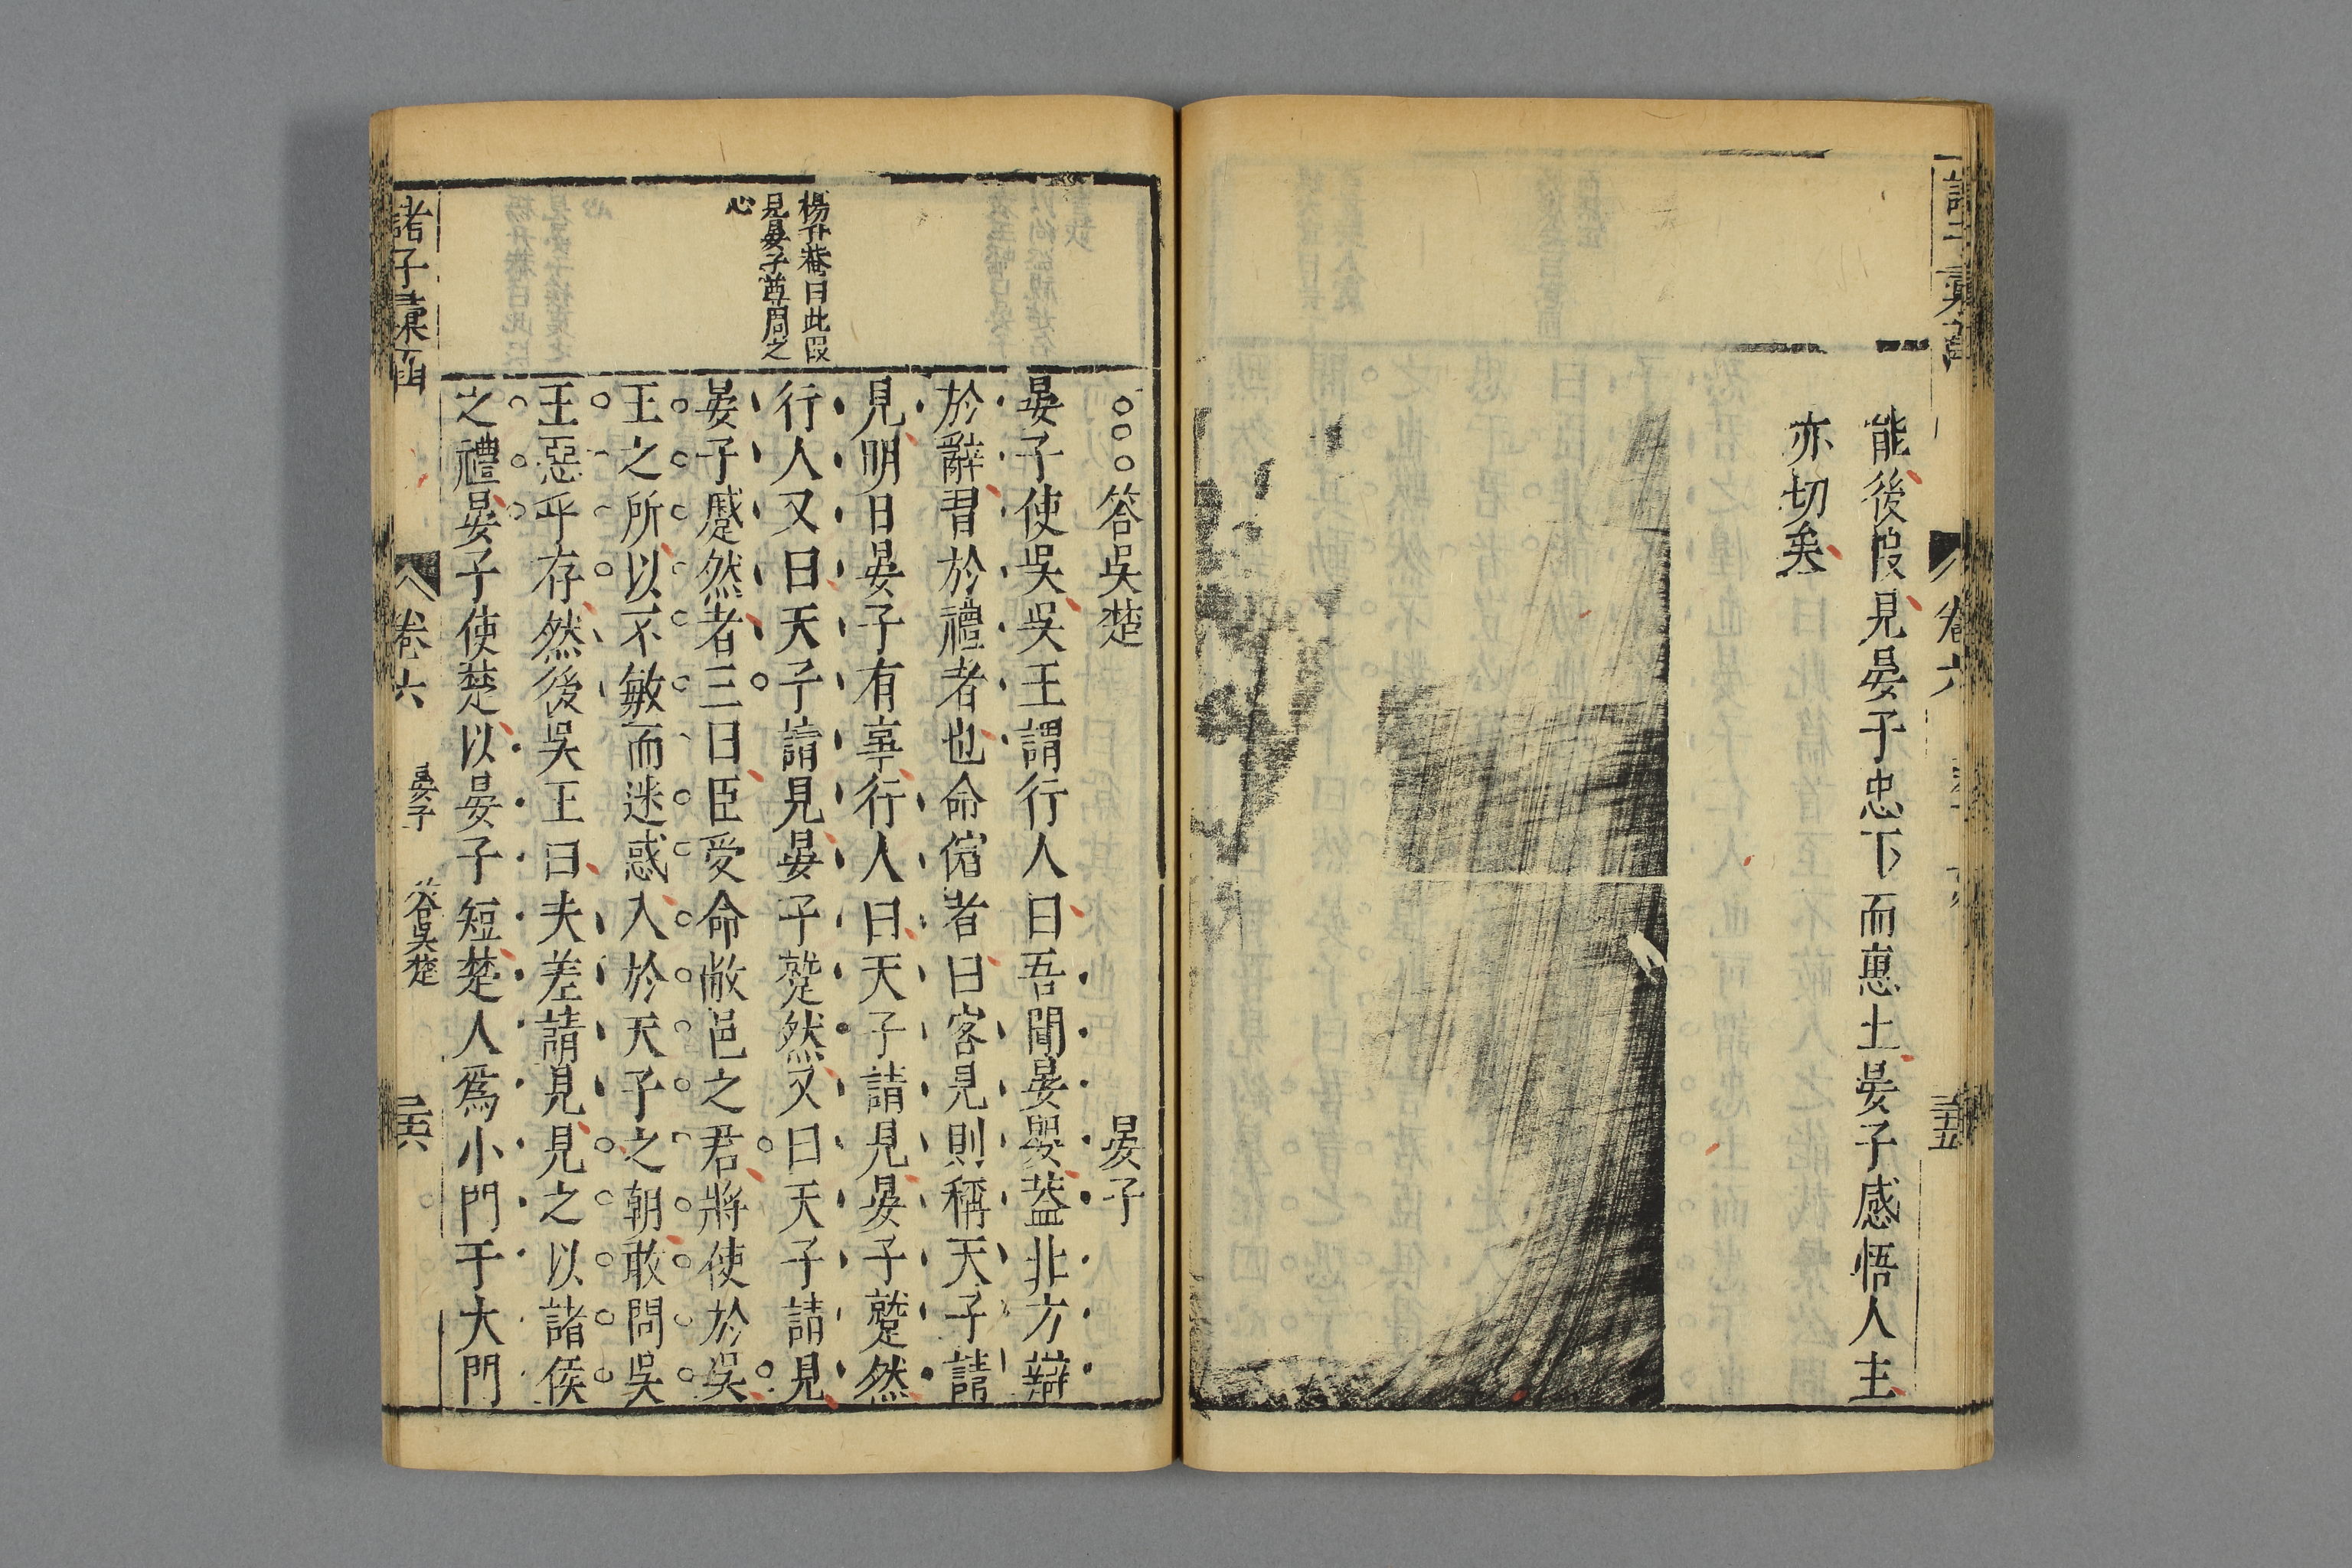 諸子彙函
卷六
三十五
能後段見晏子忠下而惠士晏子感悟人主
亦切矣
楊升菴曰此段
見晏子尊周之
心
○○○答吳楚 晏子
晏子使吳吳王謂行人曰吾聞晏嬰葢北方辯
於辭習於禮者也命儐者曰客見則稱天子請
見明日晏子有事行人曰天子請見晏子蹵然
行人又曰天子請見晏子蹵然又曰天子請見
晏子蹙然者三曰臣受命敝邑之君將使於吳
王之所以不敏而迷惑入於天子之朝敢問吳
王惡乎存然後吳王曰夫差請見見之以諸侯
之禮晏子使楚以晏子短楚人爲小門于大門
諸子彙函
卷六
晏子
答吳楚
三十六